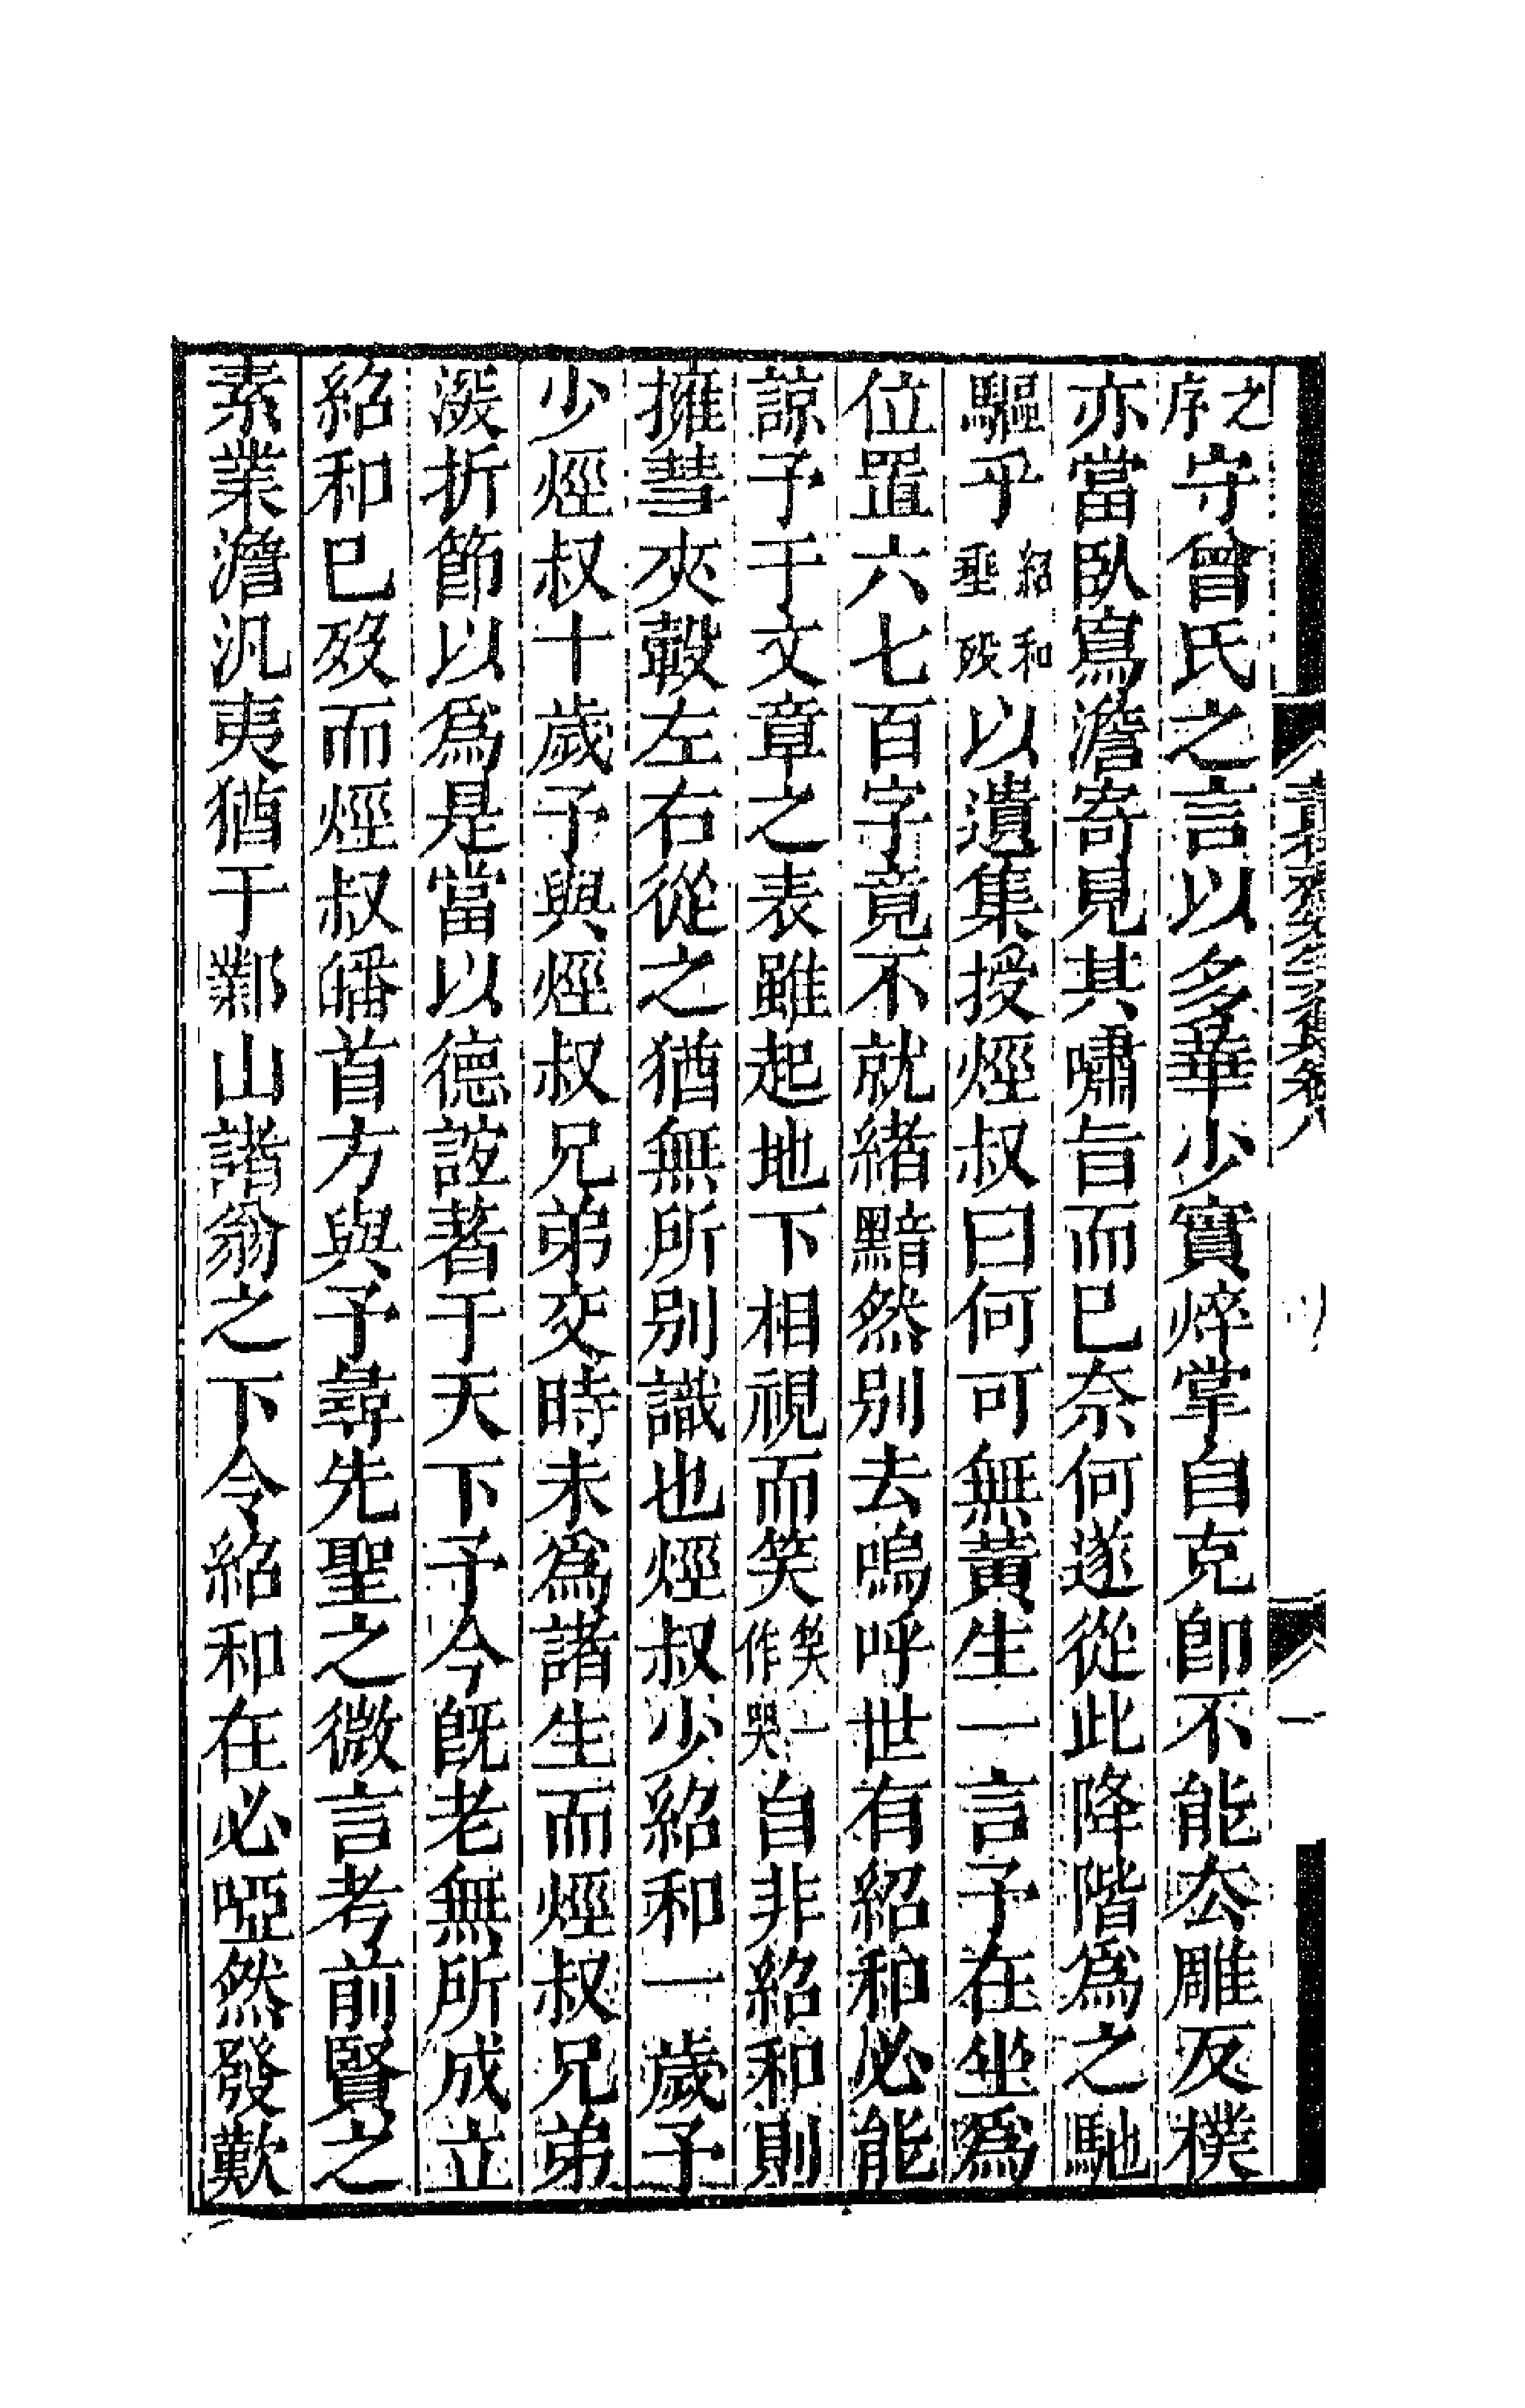 之序守曾氏之言以多華少實焠掌自克卽不能厺雕反樸
亦當臥寫澹寄見其嘯旨而已奈何遂從此降階爲之馳
驅乎紹和垂歿以遺集授烴叔曰何可無黃生一言予在坐爲
位罝六七百字竟不就緒黯然別去嗚呼世有紹和必能
諒予于文章之表雖起地下相視而笑笑一作哭自非紹和則
擁彗夾轂左右從之猶無所別識也烴叔少紹和一歲予
少烴叔十歲予與烴叔兄弟交時未爲諸生而烴叔兄弟
折節以爲是當以德誼著于天下予今旣老無所成立
紹和已歿而烴叔皤首方與予尋先聖之微言考前賢之
素業澹汎夷猶于鄴山諸翁之下令紹和在必啞然發歎